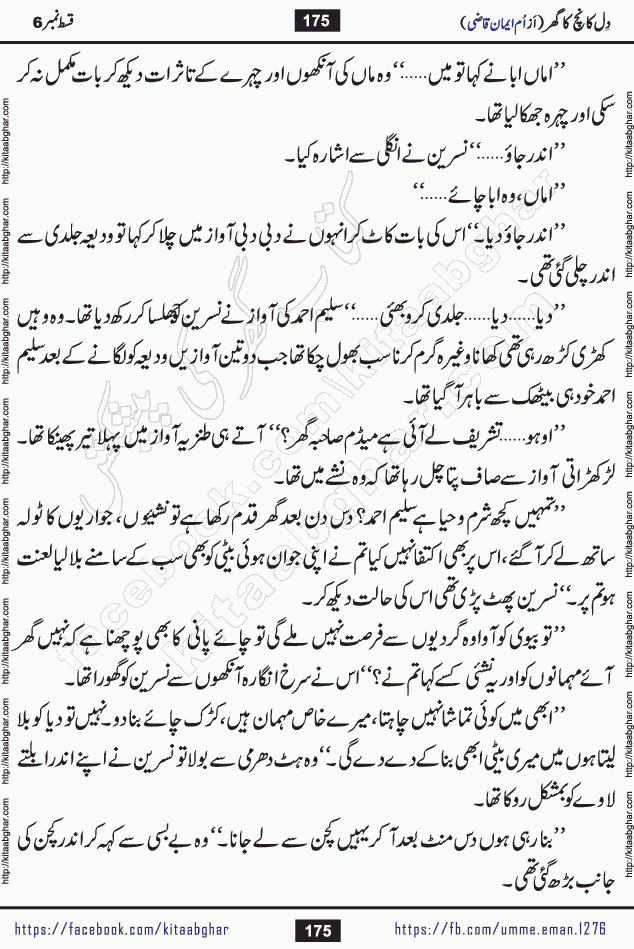 دِل کانچ کا گھر (اَز اُم ایمان قاضی)
175
قسط نمبر 6
’’اماں ابا نے کہا تو میں......‘‘ وہ ماں کی آنکھوں اور چہرے کے تاثرات دیکھ کر بات مکمل نہ کر
سکی اور چہرہ جھکا لیا تھا۔
’’اندر جاؤ......‘‘ نسرین نے انگلی سے اشارہ کیا۔
’’اماں، وہ ابا چائے......‘‘
’’اندر جاؤ دیا۔‘‘ اس کی بات کاٹ کر انہوں نے دبی دبی آواز میں چلا کر کہا تو ودیعہ جلدی سے
اندر چلی گئی تھی۔
’’دیا......دیا......جلدی کرو بھئی......‘‘ سلیم احمد کی آواز نے نسرین کو جھلسا کر رکھ دیا تھا۔ وہ وہیں
کھڑی کڑھ رہی تھی کھانا وغیرہ گرم کرنا سب بھول چکا تھا جب دو تین آوازیں ودیعہ کو لگانے کے بعد سلیم
احمد خود ہی بیٹھک سے باہر آ گیا تھا۔
’’اوہو......تشریف لے آئی ہے میڈم صاحبہ گھر؟‘‘ آتے ہی طنزیہ آواز میں پہلا تیر پھینکا تھا۔
لڑکھڑاتی آواز سے صاف پتا چل رہا تھا کہ وہ نشے میں تھا۔
’’تمہیں کچھ شرم و حیا ہے سلیم احمد؟ دس دن بعد گھر قدم رکھا ہے تو نشیوں، جواریوں کا ٹولہ
ساتھ لے کر آ گئے، اس پر بھی اکتفا نہیں کیا تم نے اپنی جوان ہوئی بیٹی کو بھی سب کے سامنے بلا لیا لعنت
ہو تم پر۔‘‘ نسرین پھٹ پڑی تھی اس کی حالت دیکھ کر۔
’’تو بیوی کو آوارہ گردیوں سے فرصت نہیں ملے گی تو چائے پانی کا بھی پوچھنا ہے کہ نہیں گھر
آئے مہمانوں کو اور یہ نشئی کسے کہا تم نے؟‘‘ اس نے سرخ انگارہ آنکھوں سے نسرین کو گھورا تھا۔
’’ابھی میں کوئی تماشا نہیں چاہتا، میرے خاص مہمان ہیں، کڑک چائے بنا دو۔ نہیں تو دیا کو بلا
لیتا ہوں میں میری بیٹی ابھی بنا کے دے دے گی۔‘‘ وہ ہٹ دھرمی سے بولا تو نسرین نے اپنے اندر ابلتے
لاوے کو بمشکل روکا تھا۔
’’بنا رہی ہوں دس منٹ بعد آ کر یہیں کچن سے لے جانا۔‘‘ وہ بے بسی سے کہہ کر اندر کچن کی
جانب بڑھ گئی تھی۔
http://kitaabghar.com http://kitaabghar.com http://kitaabghar.com http://kitaabghar.com http://kitaabghar.com http://kitaabghar.com http://kitaabghar.com http://kitaabghar.com
http://kitaabghar.com http://kitaabghar.com http://kitaabghar.com http://kitaabghar.com http://kitaabghar.com http://kitaabghar.com http://kitaabghar.com http://kitaabghar.com
کتاب گھر کی پیشکش
facebook.com/kitaabghar
kitaabghar.com
https://facebook.com/kitaabghar
175
https://fb.com/umme.eman.1276